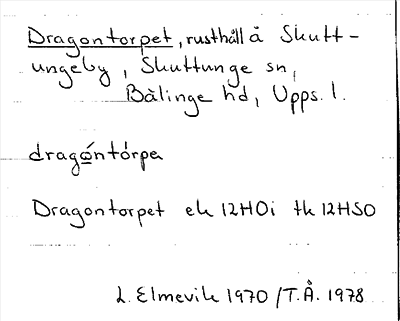 Dragontorpet, rusthåll å Skutt-
ungeby, Skuttunge sn,
Bälinge hd, Upps. l.
dragóntórpa
Dragontorpet ek 12H0i tk 12HSO
L. Elmevik 1970 /T.Å. 1978